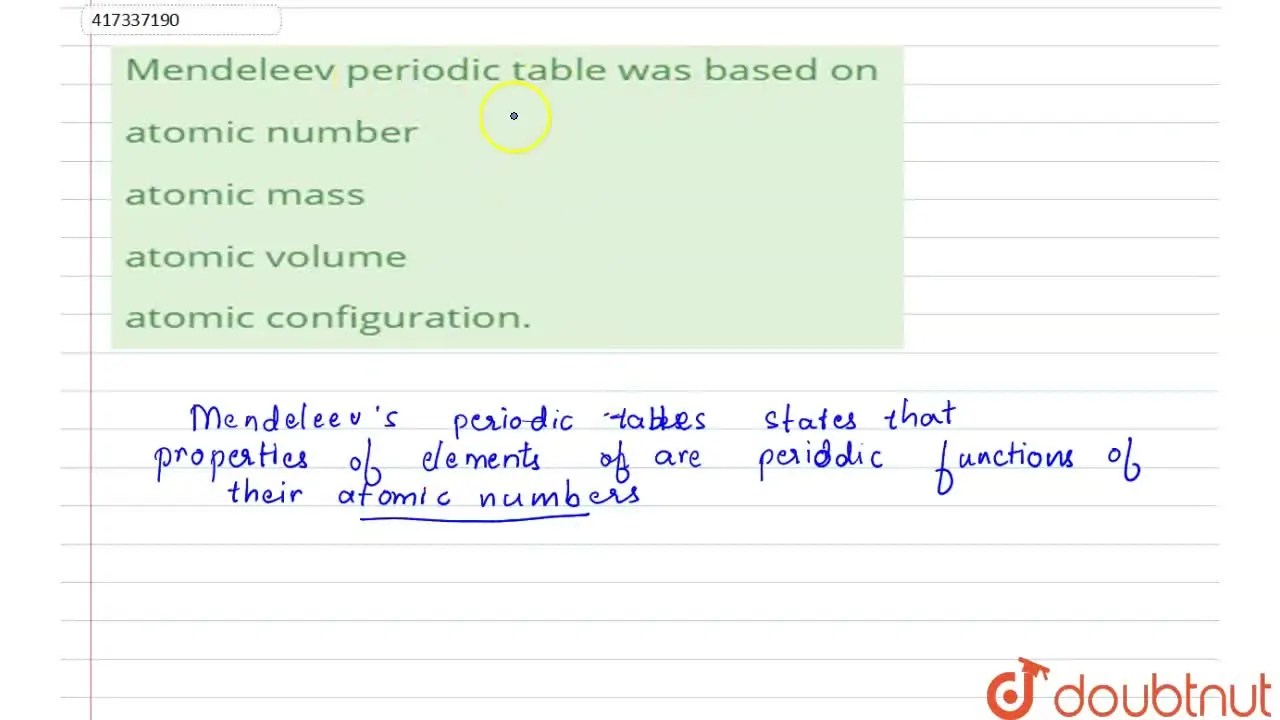 417337190
Mendeleev periodic table was based on
atomic number
atomic mass
atomic volume
atomic configuration.
Mendeleev's periodic tables states that
properties of elements of are periodic functions of
their atomic numbers
doubtnut